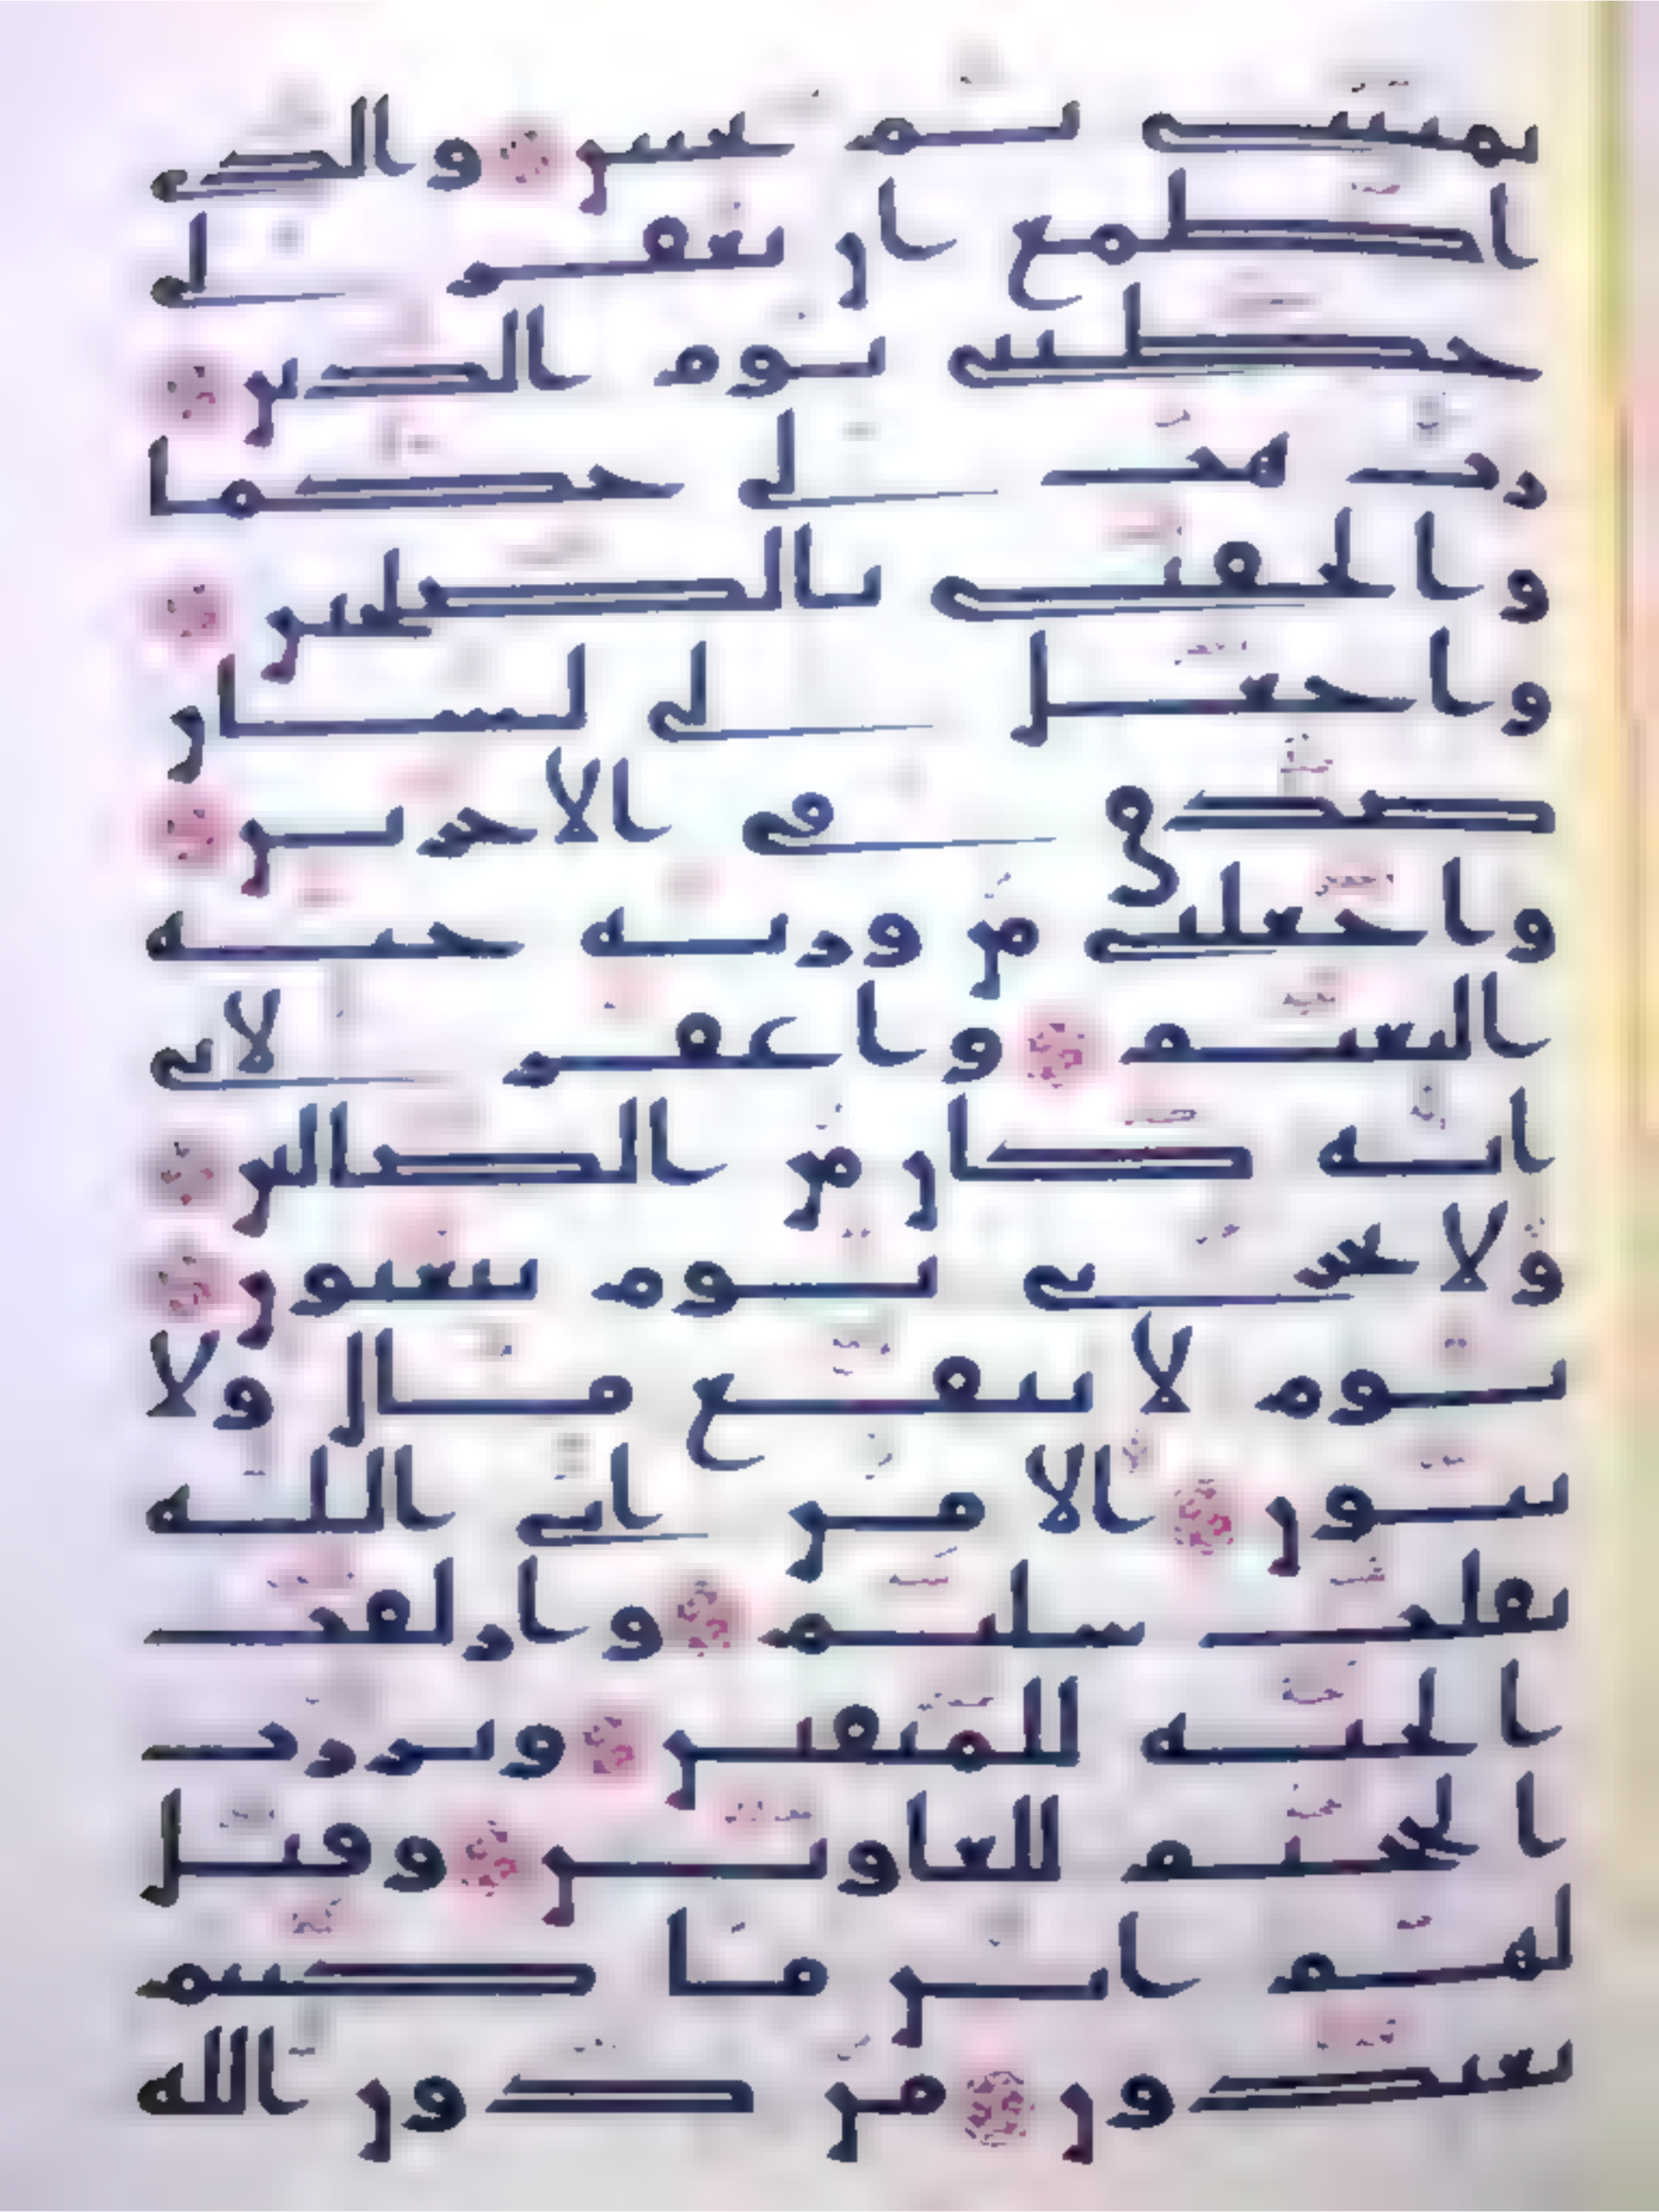 يميتني ثم يحيين والذي
اطمع ان يغفر لي
خطيتي يوم الدين
رب هب لي حكما
والحقني بالصلحين
واجعل لي لسان
صدق في الاخرين
واجعلني من ورثه جنه
النعيم واغفر لابي
انه كان من الضالين
ولا تخزني يوم يبعثون
يوم لا ينفع مال ولا
بنون الا من اتى الله
بقلب سليم وازلفت
الجنه للمتقين وبرزت
الجحيم للغاوين وقيل
لهم اين ما كنتم
تعبدون من دون الله